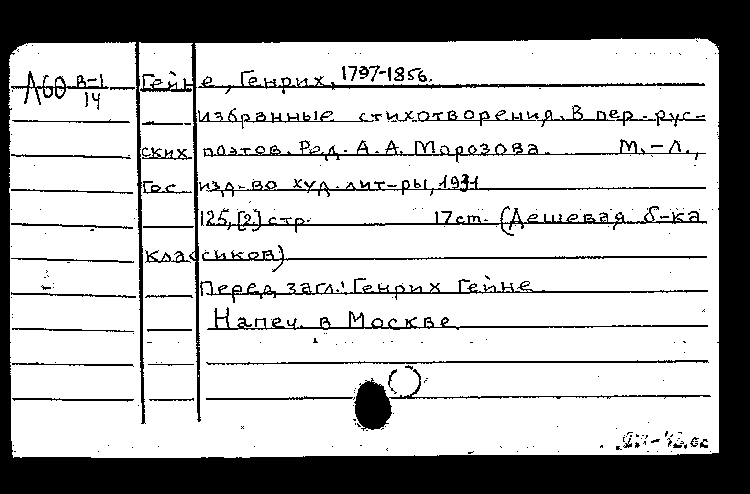 Л60 В-1/14
Гейне, Генрих, 1797-1856.
избранные стихотворения. В пер. рус-
ских поэтов. Ред. А.А. Морозова. М.-Л.,
Гос. изд-во худ. лит-ры, 1931
125, [2] стр. 17 ст. (Дешевая б-ка
классиков)
Перед загл.: Генрих Гейне
Напеч. в Москве